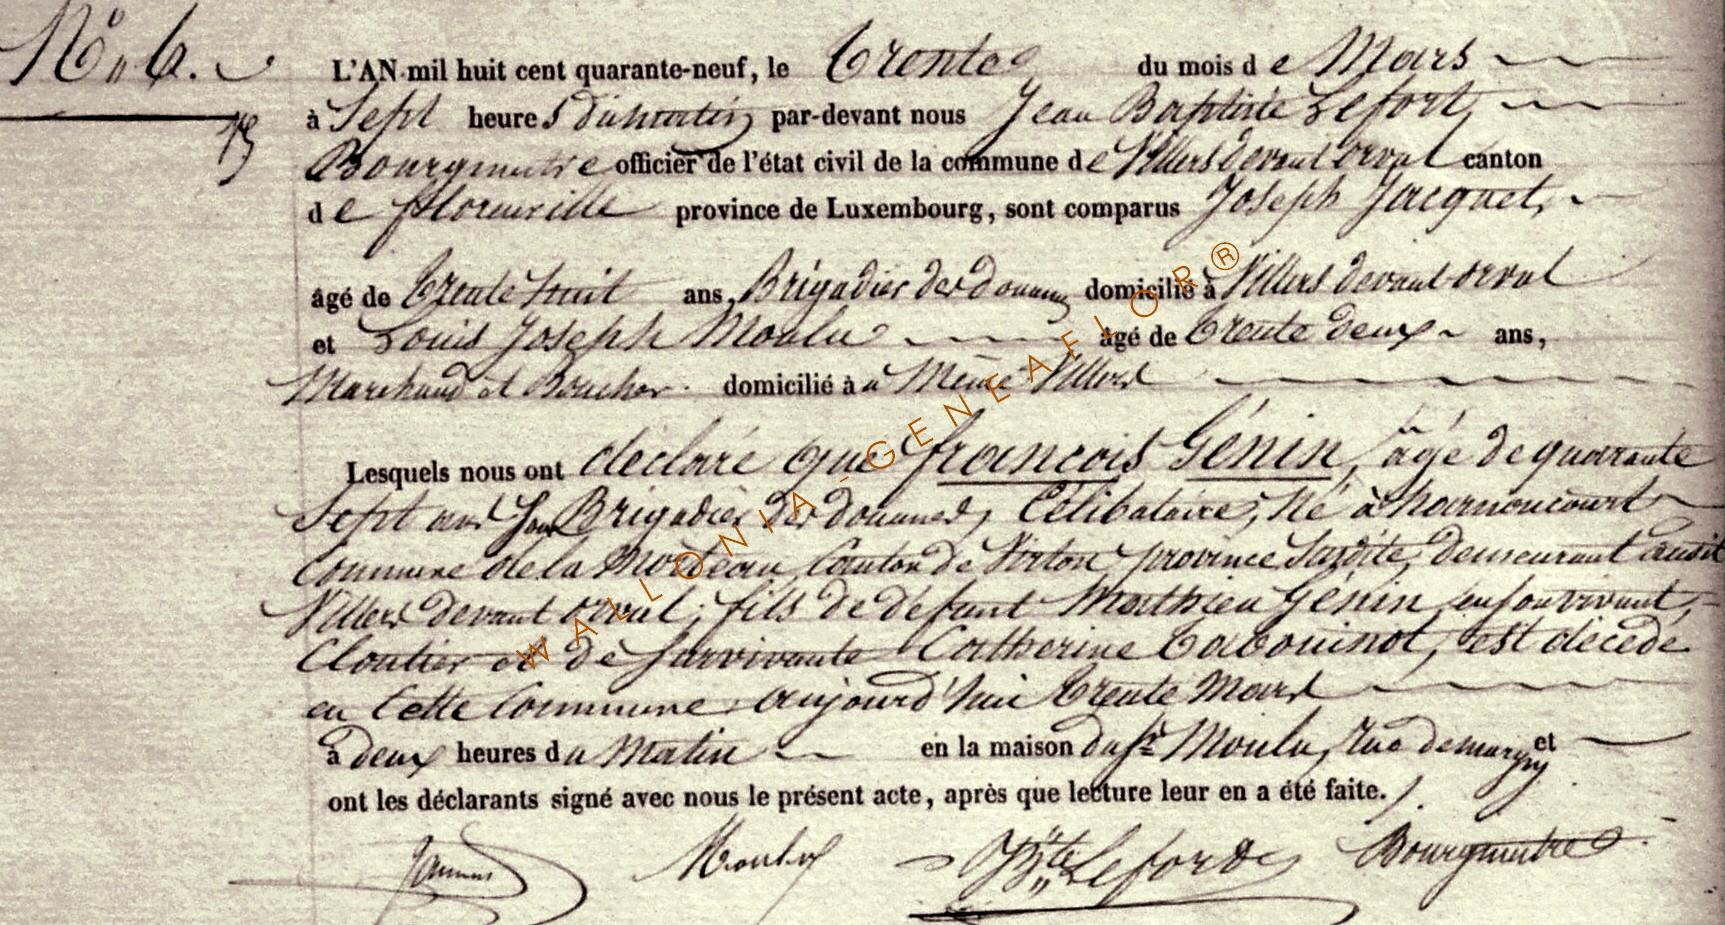 N° 6.
L'AN mil huit cent quarante-neuf, le Trente du mois de Mars
à Sept heures du matin, par-devant nous Jean Baptiste Lefort,
Bourgmestre officier de l'état civil de la commune de Villers devant orval canton
de florenville province de Luxembourg, sont comparus Joseph Jacquet,
âgé de Trente huit ans, Brigadier des douanes domicilié à Villers devant orval
et Louis Joseph Moulu âgé de trente deux ans,
Marchand et Boucher. domicilié à a Même Villers
Lesquels nous ont déclaré que françois Génin, âgé de quarante
Sept ans Brigadier des douanes, Célibataire, né à harnoncourt
Commune de la Morteau Canton de Virton province Susdite, demeurant audit
Villers devant orval, fils de défunt Mathieu Génin, en son vivant,
Cloutier et de survivante Catherine Tabouinot, est décédé
en cette Commune aujourd'hui trente Mars
à deux heures du Matin en la maison du sr Moulu, rue de margny et
ont les déclarants signé avec nous le présent acte, après que lecture leur en a été faite.
Moulu Bte Lefort Bourgmestre
WALLONIA-GENEAFLOR®